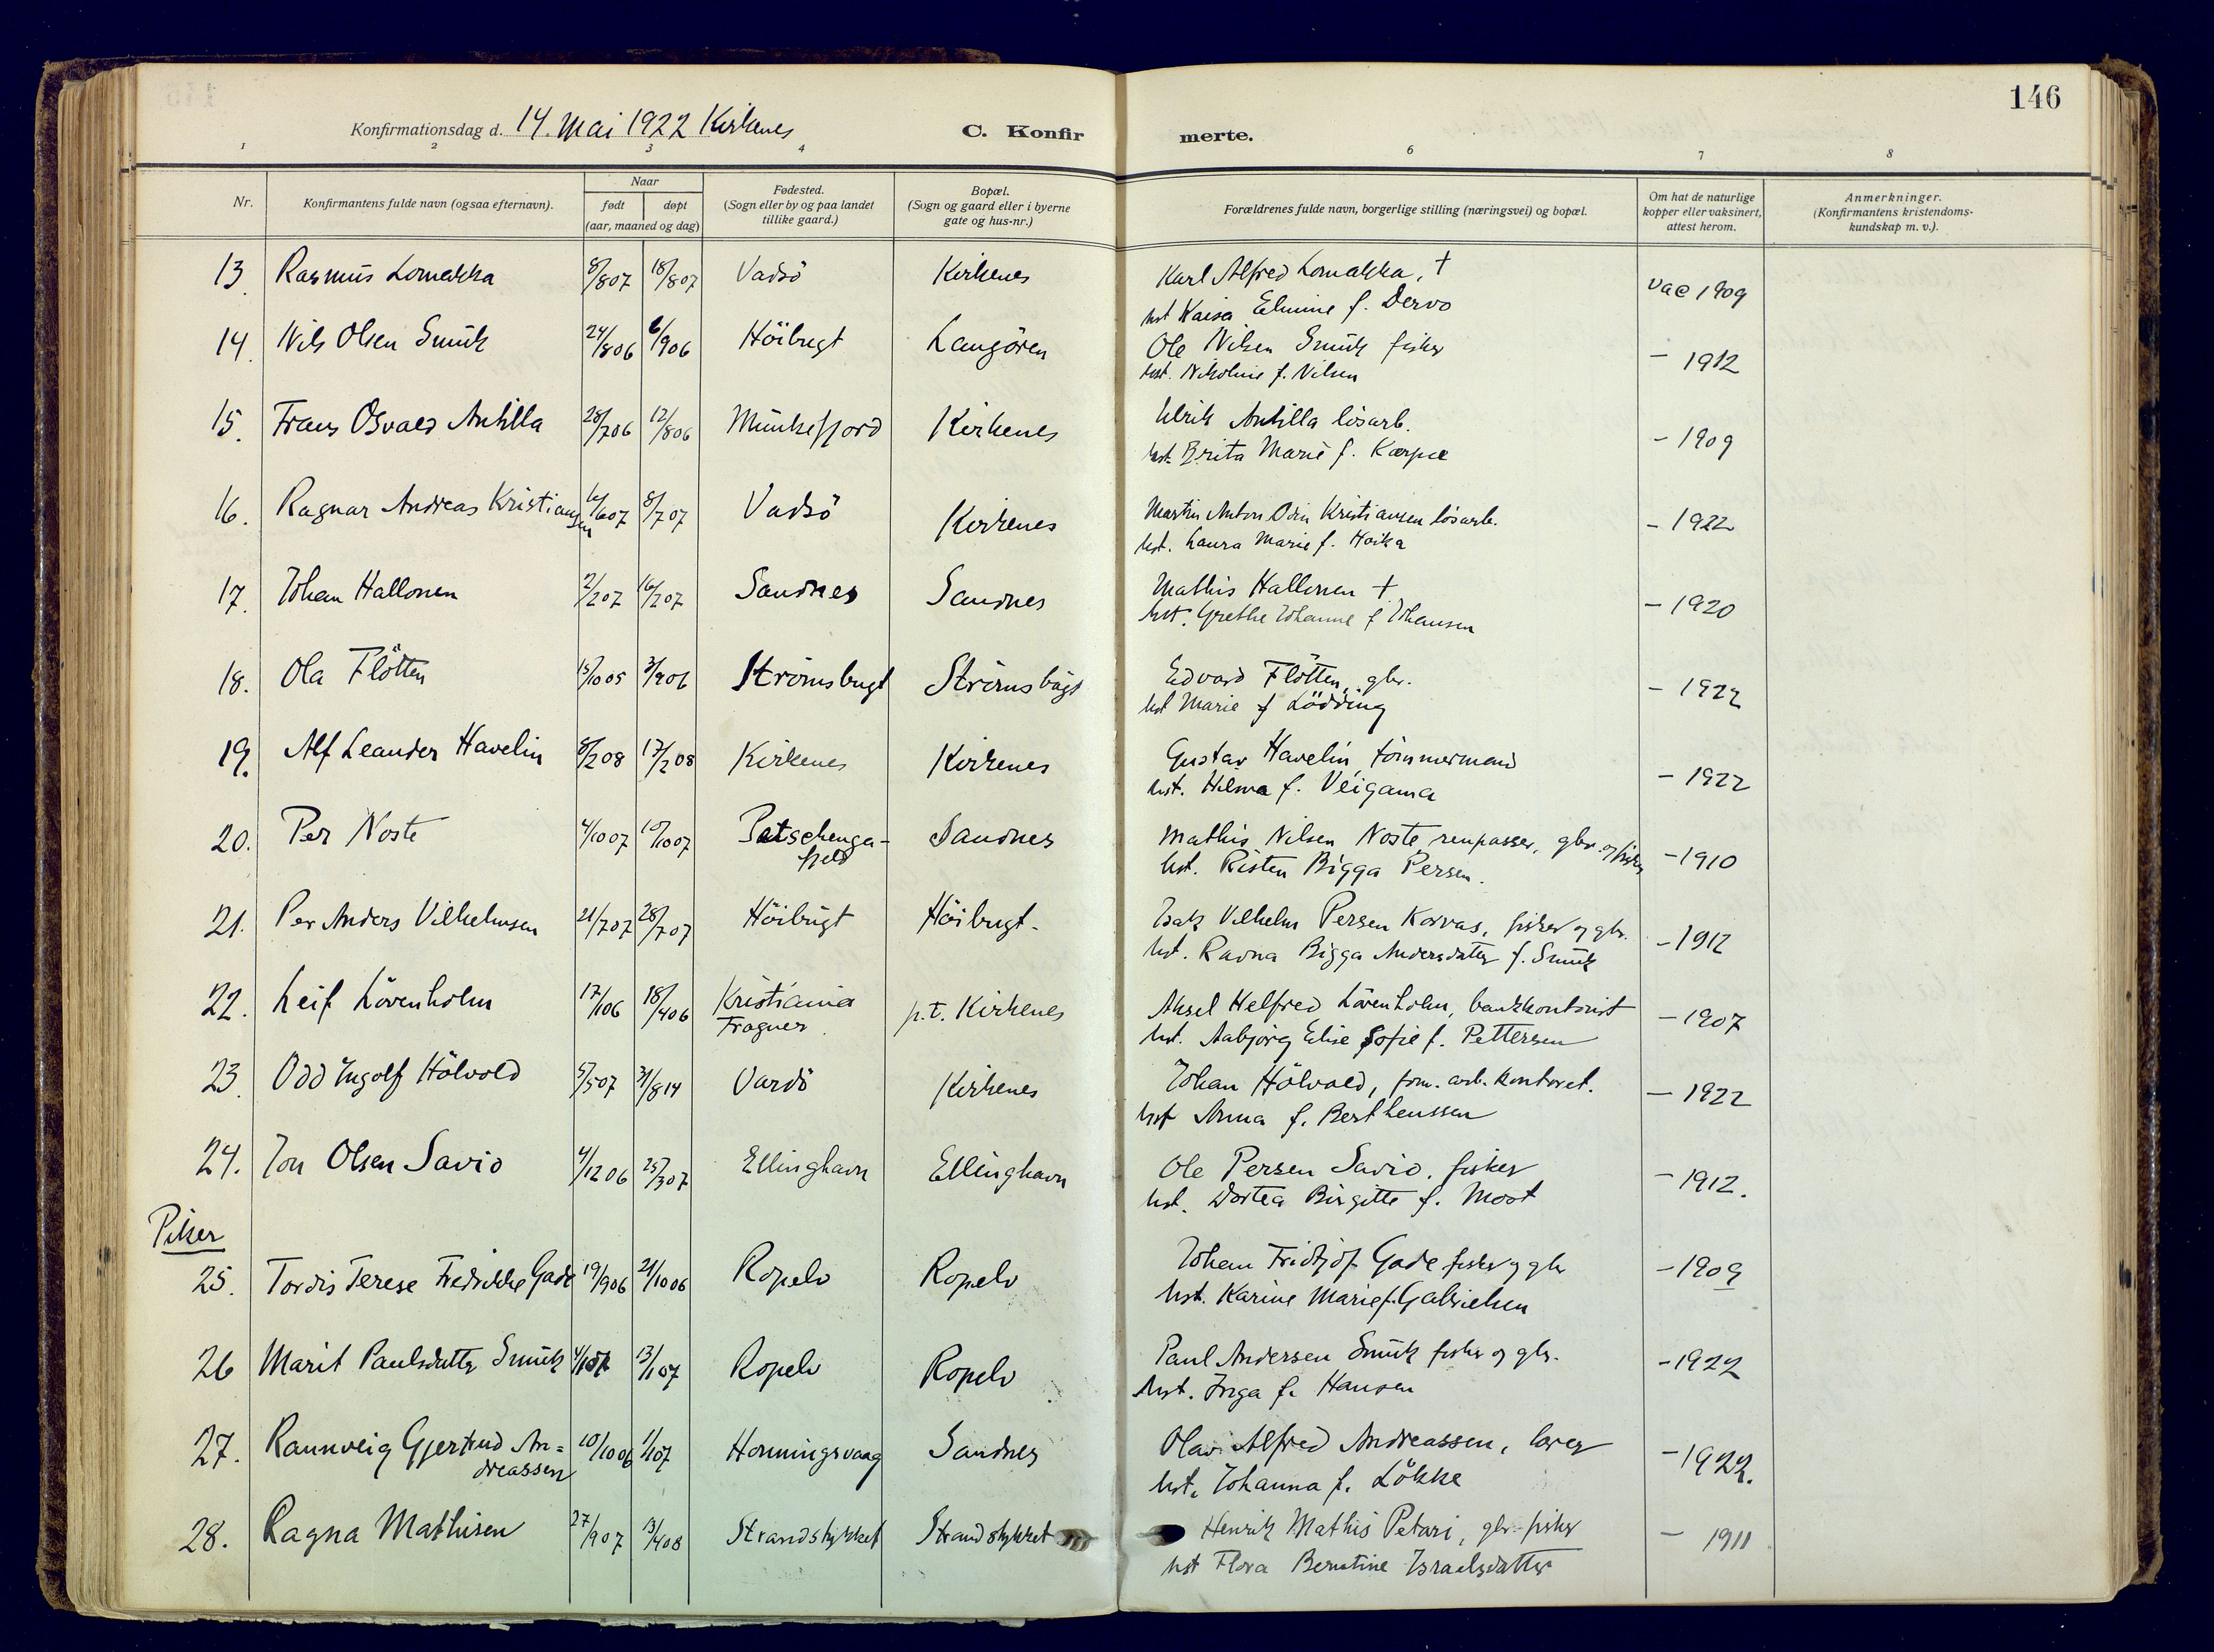 146
Konfirmationsdag d. 14. Mai 1922 Kirkenes C. Konfirmerte.
1 2 3 4 6 7 8
Nr. Konfirmantens fulde navn (ogsaa efternavn). Naar født døpt (aar, maaned og dag) Fødested. (Sogn eller by og paa landet tillike gaard.) Bopæl. (Sogn og gaard eller i byerne gate og hus-nr.) Forældrenes fulde navn, borgerlige stilling (næringsvei) og bopæl. Om hat de naturlige kopper eller vaksinert, attest herom. Anmerkninger. (Konfirmantens kristendoms-kundskap m. v.).
13 Rasmus Lomakka 8/8 07 18/8 07 Vadsö Kirkenes Karl Alfred Lomakka, † vac 1909
hst Kaisa Elmine f. Dervo
14. Nils Olsen Smuk 24/8 06 6/9 06 Höibugt Langören Ole Nilsen Smuk fisker – 1912
hst. Nikoline f. Nilsen
15. Frans Osvald Antilla 28/7 06 12/8 06 Munkefjord Kirkenes Ulrik Antilla lösarb. – 1909
hst. Brita Marie f. Karpæ
16. Ragnar Andreas Kristiansen 16/6 07 8/7 07 Vadsö Kirkenes Martin Anton Odin Kristiansen lösarb. – 1922
hst. Laura Marie f. Hoika
17. Johan Hallonen 2/2 07 16/2 07 Sandnes Sandnes Mathis Hallonen † – 1920
hst. Grethe Johanne f Johansen
18. Ola Flötten 15/10 05 3/9 06 Strömsbugt Strömsbugt Edvard Flötten, gbr. – 1922
hst Marie f Lödding
19. Alf Leander Havelin 8/2 08 17/2 08 Kirkenes Kirkenes Gustav Havelin tömmermand – 1922
hst. Hilma f. Veigama
20. Per Noste 4/10 07 10/10 07 Petschenga-fjeld Sandnes Mathis Nilsen Noste, renpasser, gbr. og fisker – 1910
hst. Risten Bigga Persen.
21. Per Anders Vilhelmsen 21/7 07 28/7 07 Höibugt Höibugt. Isak Vilhelm Persen Korvas, fisker og gbr. – 1912
hst. Ravna Bigga Andersdatter f. Smuk
22. Leif Lövenholm 17/1 06 18/4 06 Kristiania Frogner p.t. Kirkenes Aksel Helfred Lövenholm, bankkontorist – 1907
hst. Aabjörg Elise Sofie f. Pettersen
23. Odd Ingolf Hölvold 5/5 07 31/8 14 Vardö Kirkenes Johan Hölvold, form. arb. kontoret. – 1922
hst Anna f. Berthenssen
24. Jon Olsen Savio 4/12 06 25/3 07 Ellinghavn Ellinghavn Ole Persen Savio. fisker – 1912.
hst. Dortea Birgitte f. Moot
Piker
25. Tordis Terese Fredrikke Gade 19/9 06 21/10 06 Ropelv Ropelv Johan Fridtjof Gade fisker og gbr – 1909
hst. Karine Marie f. Gabrielsen
26 Marit Paulsdatter Smuk 4/1 07 13/1 07 Ropelv Ropelv Paul Andersen Smuk fisker og gbr. – 1922
hst. Inga f. Hansen
27. Rannveig Gjertrud An=dreassen 10/10 06 1/1 07 Honningsvaag Sandnes Olav Alfred Andreassen, lærer – 1922.
hst. Johanna f. Lökke
28. Ragna Mathisen 27/9 07 13/4 08 Strandstykket Strandstykket Henrik Mathis Petari, gbr. fisker – 1911
hst Flora Berntine Israelsdatter